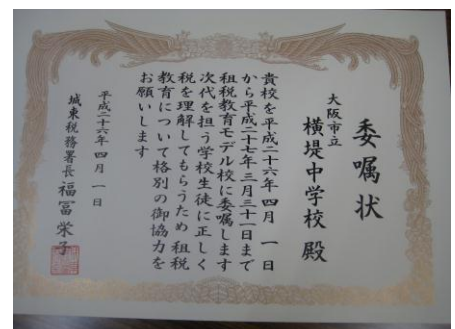 委嘱状
大阪市立
横堤中学校 殿
貴校を平成二十六年四月一日
から平成二十七年三月三十一日まで
租税教育モデル校に委嘱します
次代を担う学校生徒に正しく
税を理解してもらうため租税
教育について格別の御協力を
お願いします
平成二十六年四月一日
城東税務署長 福冨栄子